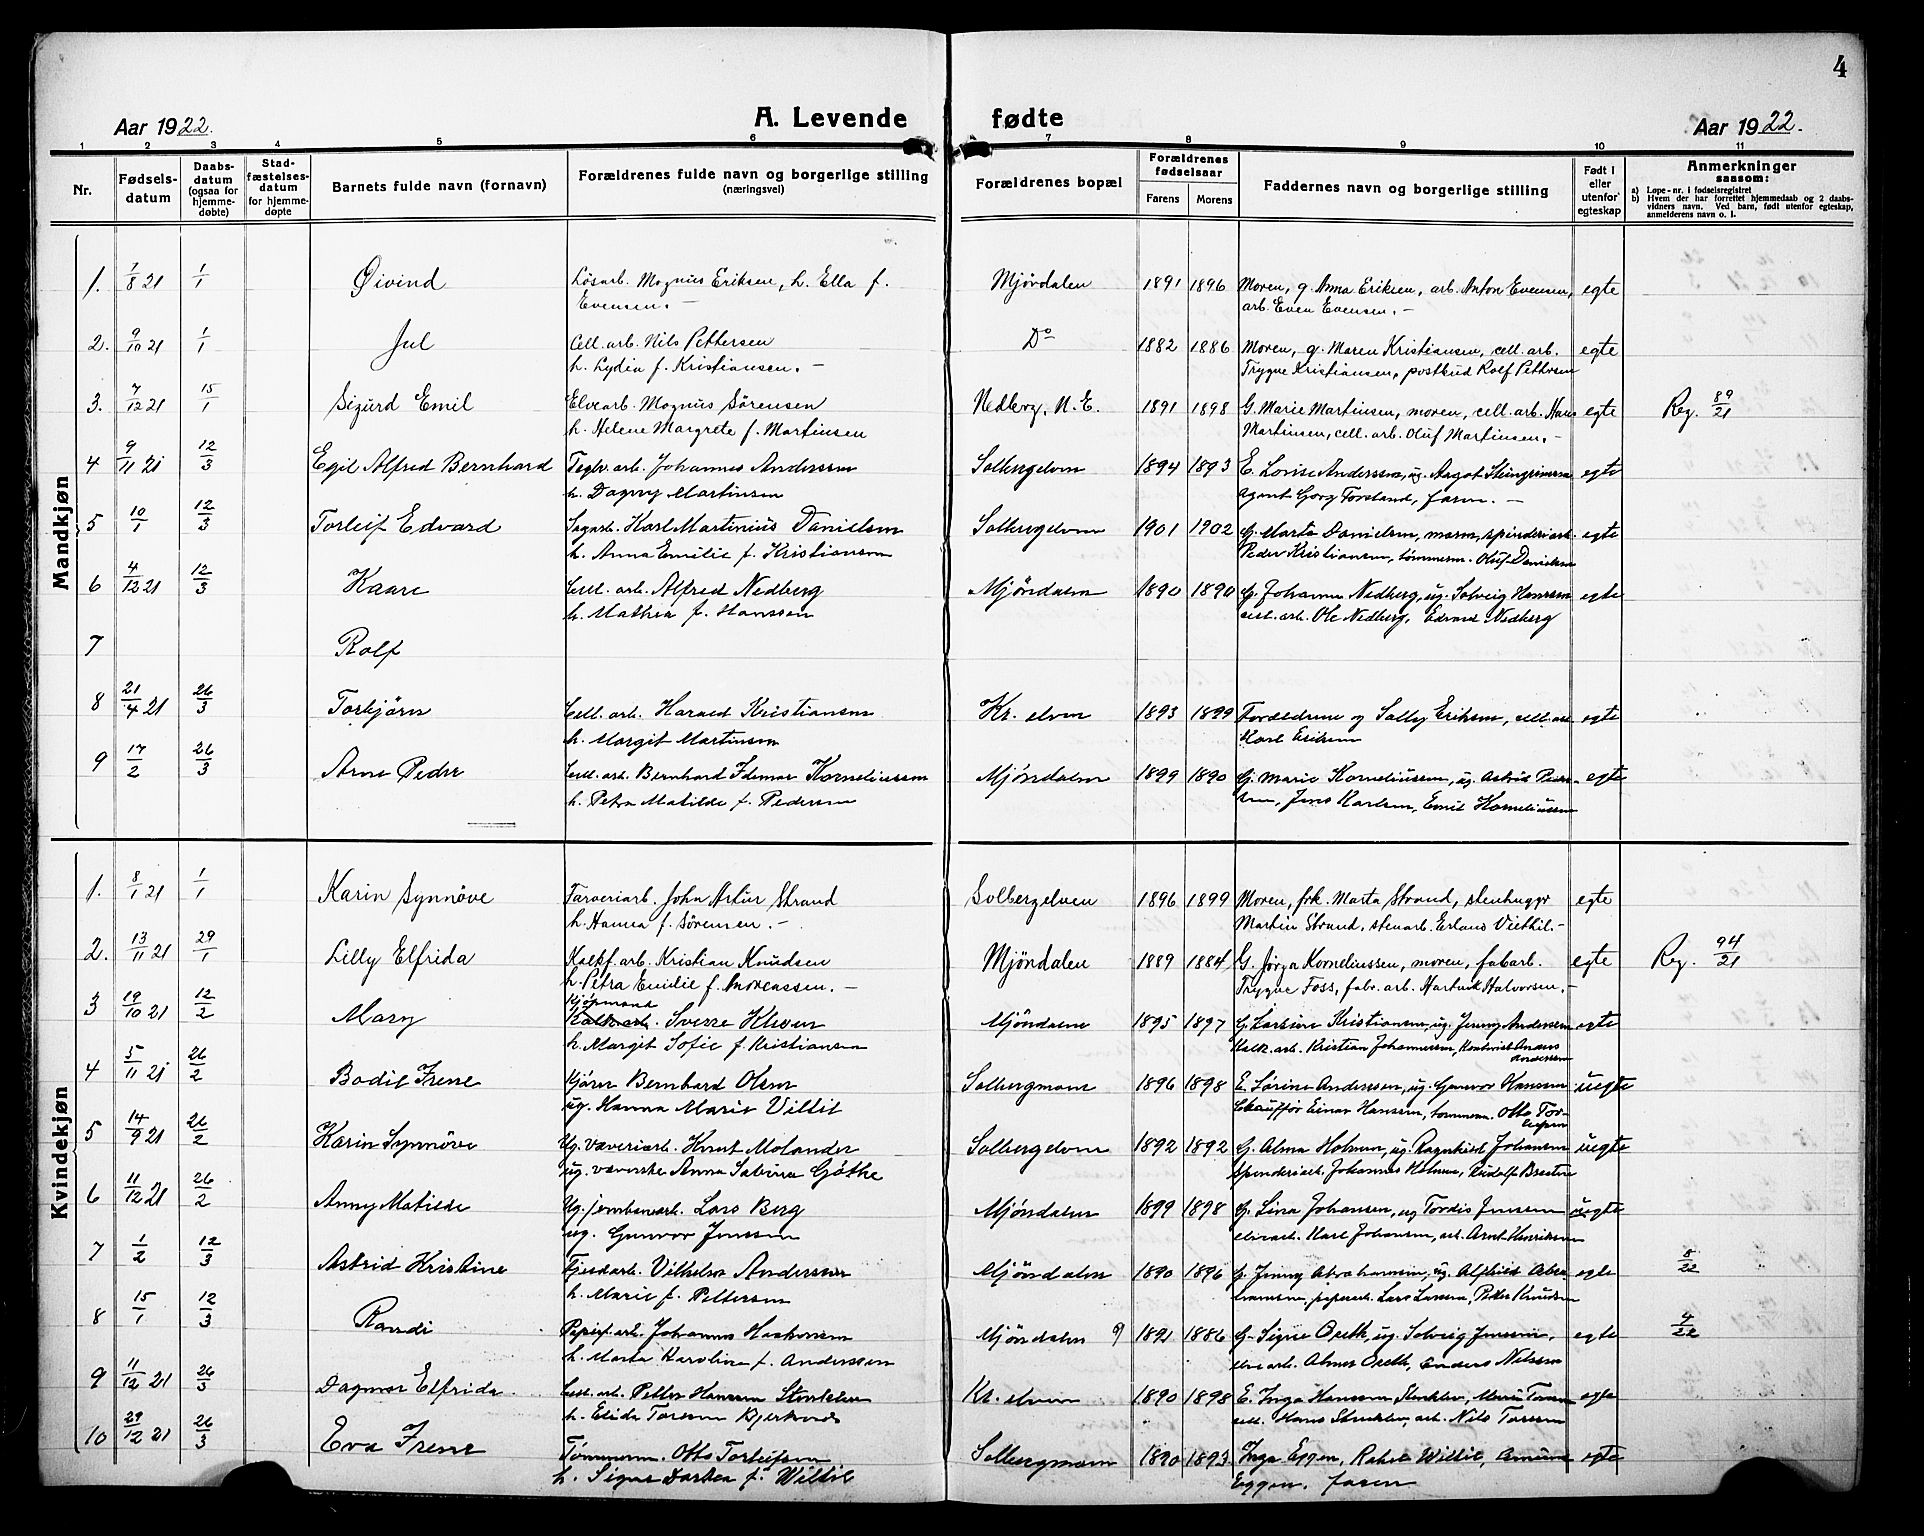 4
Aar 1922.
A. Levende fødte
Aar 1922.
1 2 3 4 5 6 7 8 9 10 11
Nr.
Fødsels-
datum
Daabs-
datum
(ogsaa for
hjemme-
døbte)
Stad-
fæstelses-
datum
for hjemme-
døpte
Barnets fulde navn (fornavn)
Forældrenes fulde navn og borgerlige stilling
(næringsvei)
Forældrenes bopæl
Forældrenes
fødselsaar
Farens Morens
Faddernes navn og borgerlige stilling
Født i
eller
utenfor
egteskap
Anmerkninger
saasom:
a) Løpe-nr. i fødselsregistret
b) Hvem der har forrettet hjemmedaab og 2 daabs-
vidners navn. Ved barn, født utenfor egteskap,
anmelderens navn o. l.
Mandkjøn
1. 7/8 21 1/1 Øivind Løsarb. Magnus Eriksen, h. Ella f. Mjøndalen 1891 1896 Moren, g. Anna Eriksen, arb. Anton Evensen, egte
Evensen. – arb. Even Evensen. –
2. 9/10 21 1/1 Jul Cell. arb. Nils Pettersen Do 1882 1886 Moren, g. Maren Kristiansen, cell. arb. egte
h. Lydia f. Kristiansen. – Trygve Kristiansen, postbud Rolf Pettersen
3. 7/12 21 15/1 Sigurd Emil Elvearb. Magnus Sørensen Nedberg, N. E. 1891 1898 G. Marie Martinsen, moren, cell. arb. Hans egte Reg. 89/21
h. Helene Margrete f. Martinsen Martinsen, cell. arb. Oluf Martinsen. –
4 9/11 21 12/3 Egil Alfred Bernhard Teglv. arb. Johannes Anderssen Solbergelven 1894 1893 E. Lovise Anderssen, ug. Aagot Steingrimsen egte
h. Dagny Martinsen agent Georg Torstand, faren. –
5 10/1 12/3 Torleif Edvard Sagarb. Karl Martinius Danielsen Solbergelven 1901 1902 G. Marta Danielsen, moren, spinderiarb. egte
h. Anna Emilie f. Kristiansen Peder Kristiansen, tømmerm. Oluf Danielsen
6 4/12 21 12/3 Kaare Cell. arb. Alfred Nedberg Mjøndalen 1890 1890 G. Johanne Nedberg, ug. Solveig Hanssen egte
h. Mathea f. Hanssen cell. arb. Ole Nedberg, Edvard Nedberg
7 Rolf
8 21/4 21 26/3 Torbjørn Cell. arb. Harald Kristiansen Kr. elven 1893 1899 Forældrene og Sally Eriksen, cell. arb. egte
h. Margit Martinsen Karl Eriksen
9 17/2 26/3 Arne Peder Cell. arb. Bernhard Idemar Korneliussen Mjøndalen 1899 1890 G. Marie Korneliussen, ug. Astrid Peder- egte
h. Petra Matilde f. Pedersen sen, Jens Karlsen, Emil Korneliussen
Kvindekjøn
1. 8/1 21 1/1 Karin Synnøve Farveriarb. John Artur Strand Solbergelven 1896 1899 Moren, frk. Marta Strand, stenhugger egte
h. Hanna f. Sørensen. – Martin Strand, stenarb. Erland Viethil. –
2. 13/11 21 29/1 Lilly Elfrida Kalkf. arb. Kristian Knudsen Mjøndalen 1889 1884 G. Jørga Korneliussen, moren, fabarb. egte Reg. 94/21
h. Petra Emilie f. Mareussen. – Trygve Foss, fabr. arb. Hartvik Halvorsen. –
3 19/10 21 12/2 Mary Kjøpmand Sverre Kleven Mjøndalen 1895 1897 G. Larsine Kristiansen, ug. Jenny Andersen egte
h. Margit Sofie f. Kristiansen Kalk. arb. Kristian Johannessen, Kontorist Anders
Anderssen
4 5/11 21 26/2 Bodil Irene Kjører Bernhard Olsen Solbergmoen 1896 1898 E. Lorine Anderssen, ug. Gunvor Hanssen uegte
ug. Hanna Marie Villil Chauffør Einar Hanssen, tømmerm. Otto Tor-
leifsen
5 14/9 21 26/2 Karin Synnøve Ug. væveriarb. Knut Molander Solbergelven 1892 1892 G. Alma Holmen, ug. Ragnhild Johansen uegte
ug. væverske Anna Sabina Göthe Spinderiarb. Johannes Holmen, Rudolf Braaten
6 11/12 21 26/2 Anny Matilde Ug. jernbanearb. Lars Berg Mjøndalen 1899 1898 G. Lina Johansen, ug Tordis Jenssen uegte
ug. Gunvor Jenssen elvearb. Karl Johansen, arb. Arnt Henriksen
7 1/2 12/3 Astrid Kristine Fjeldarb. Vilhelm Anderssen Mjøndalen 1890 1896 G. Jenny Abrahamsen, ug. Alfhild Abra- egte 8/22
h. Marie f. Pettersen hamsen, papirarb. Lars Larssen, Peder Knudsen
8 15/1 12/3 Randi Papirf. arb. Johannes Haakonsen Mjøndalen 1891 1886 G. Signe Oreth, ug. Solveig Jenssen, egte 4/22
h. Marta Karoline f. Anderssen elvearb. Almer Oreth, Anders Nilssen
9 11/12 21 26/3 Dagmar Elfrida Cell. arb. Petter Hanssen Stenkleven Kr. elven 1890 1898 E. Inga Hanssen Stenklev, Marie Toresen egte
h. Elida Toresen Bjerknes cell. Hans Stenklev, arb. Nils Toresen
10 29/12 21 26/3 Eva Irene Tømmerm. Otto Torleifsen Solbergmoen 1890 1893 Inga Eggen, Rakel Willil, Amund egte
h. Signe Dorthea f. Willil Eggen. faren